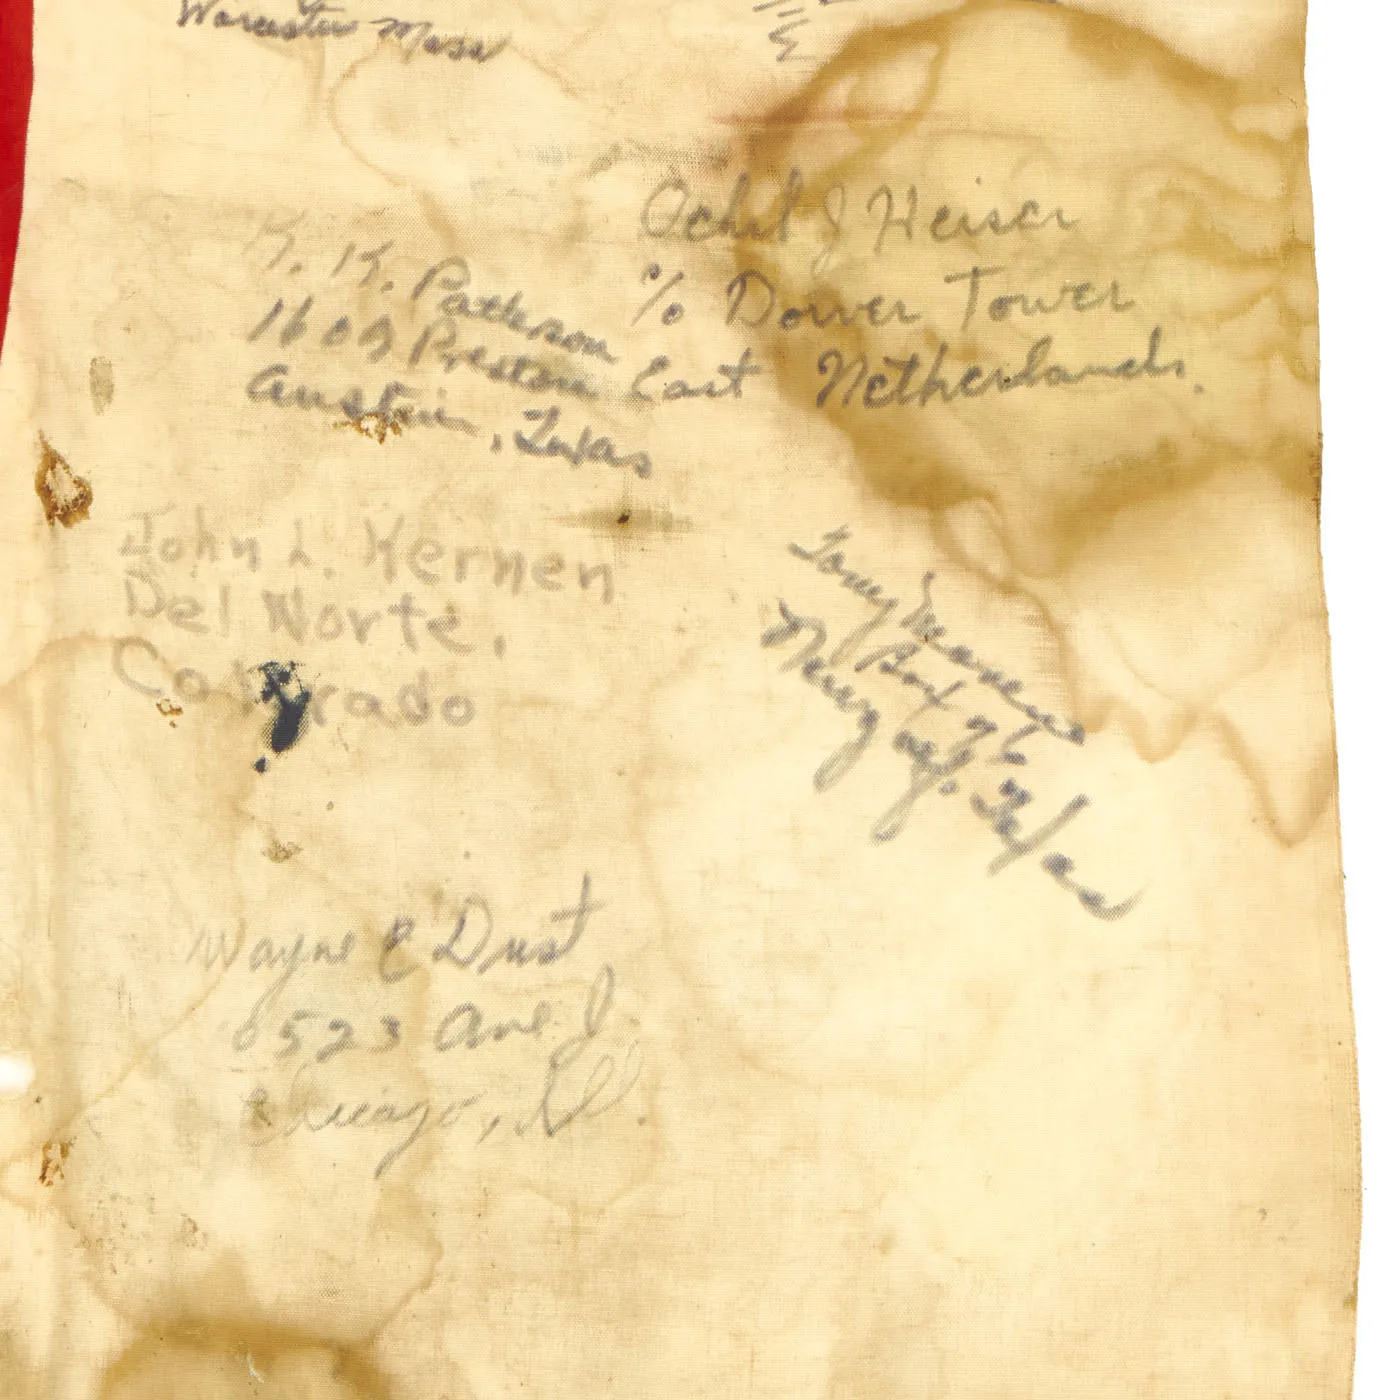 Worcester Mass
Ochel J Heiser
% Dower Tower
East Netherlands.
K. K. Patterson
1609 Preston
Austin, Texas
John L. Kernen
Del Norte,
Colorado
Tony
Box 76
Texas
Wayne E Dust
6523 Ave J
Chicago, Ill.